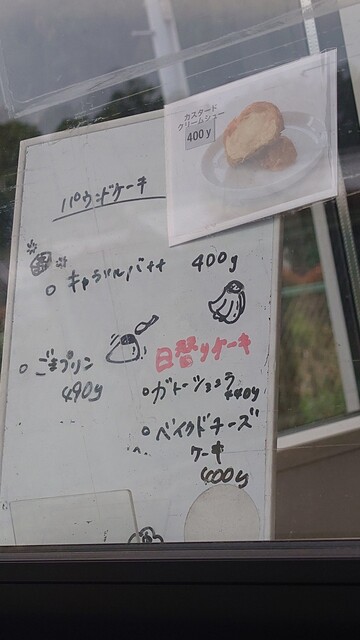 カスタード
クリームシュー
400y
パウンドケーキ
○ キャラメルバナナ 400y
○ ごまプリン
490y
日替りケーキ
○ ガトーショコラ
440y
○ ベイクドチーズ
ケーキ
400y